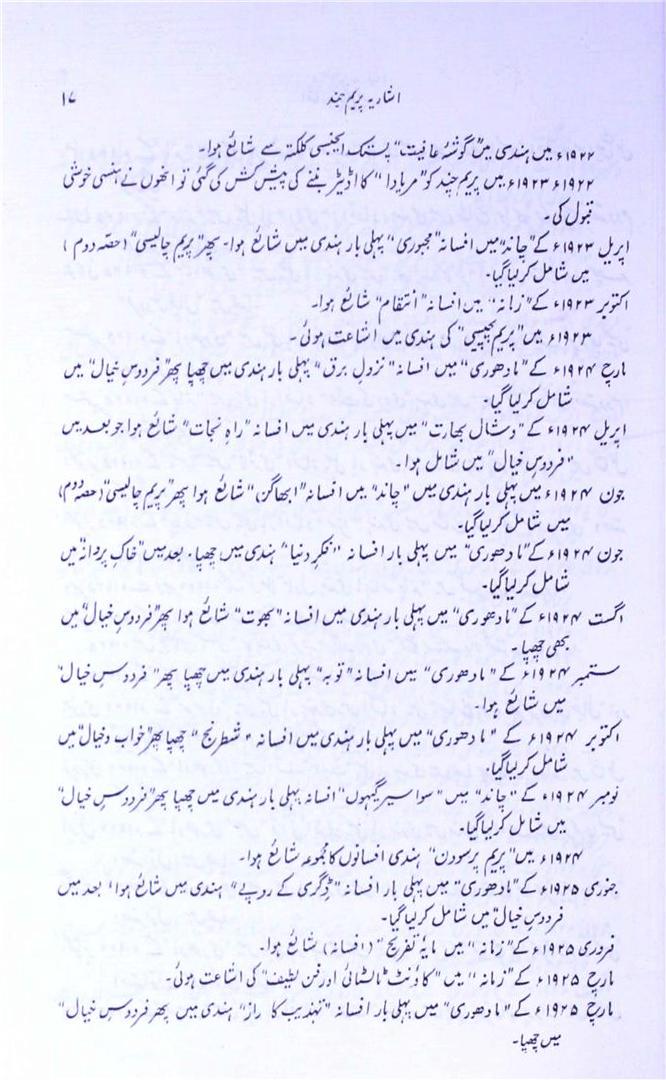 اشاریہ پریم چند
۱۷
۱۹۲۲ء میں ہندی میں "گوشۂ عافیت" پستک ایجنسی کلکتہ سے شائع ہوا۔
۱۹۲۲ء ۱۹۲۳ء میں پریم چند کو "مریادا" کا اڈیٹر بننے کی پیش کش کی گئی تو انھوں نے ہنسی خوشی
قبول کی۔
اپریل ۱۹۲۳ء کے "چاند" میں افسانہ "مجبوری" پہلی بار ہندی میں شائع ہوا۔ پھر "پریم چالیسی" (حصّہ دوم)
میں شامل کر لیا گیا۔
اکتوبر ۱۹۲۳ء کے "زمانہ" میں افسانہ "انتقام" شائع ہوا۔
۱۹۲۳ء میں "پریم پچیسی" کی ہندی میں اشاعت ہوئی۔
مارچ ۱۹۲۴ء کے "مادھوری" میں افسانہ "نزولِ برق" پہلی بار ہندی میں چھپا پھر "فردوسِ خیال" میں
شامل کر لیا گیا۔
اپریل ۱۹۲۴ء کے "وشال بھارت" میں پہلی بار ہندی میں افسانہ "راہِ نجات" شائع ہوا جو بعد میں
"فردوسِ خیال" میں شامل ہوا۔
جون ۱۹۲۴ء میں پہلی بار ہندی میں "چاند" میں افسانہ "ابھاگن" شائع ہوا پھر "پریم چالیسی" (حصّہ دوم)
میں شامل کر لیا گیا۔
جون ۱۹۲۴ء کے "مادھوری" میں پہلی بار افسانہ "فکرِ دنیا" ہندی میں چھپا۔ بعد میں "خاکِ پروانہ" میں
شامل کر لیا گیا۔
اگست ۱۹۲۴ء کے "مادھوری" میں پہلی بار ہندی میں افسانہ "بھوت" شائع ہوا پھر "فردوسِ خیال" میں
بھی چھپا۔
ستمبر ۱۹۲۴ء کے "مادھوری" میں افسانہ "توبہ" پہلی بار ہندی میں چھپا پھر "فردوسِ خیال"
میں شائع ہوا۔
اکتوبر ۱۹۲۴ء کے "مادھوری" میں پہلی بار ہندی میں افسانہ "شطرنج" چھپا پھر "خواب و خیال" میں
شامل کر لیا گیا۔
نومبر ۱۹۲۴ء کے "چاند" میں "سوا سیر گیہوں" افسانہ پہلی بار ہندی میں چھپا پھر "فردوسِ خیال"
میں شامل کر لیا گیا۔
۱۹۲۴ء میں "پریم پرسودن" ہندی افسانوں کا مجموعہ شائع ہوا۔
جنوری ۱۹۲۵ء کے "مادھوری" میں پہلی بار افسانہ "ڈگری کے روپے" ہندی میں شائع ہوا، بعد میں
فردوسِ خیال" میں شامل کر لیا گیا۔
فروری ۱۹۲۵ء کے "زمانہ" میں "مایۂ تفریح" (افسانہ) شائع ہوا۔
مارچ ۱۹۲۵ء کے "زمانہ" میں "کاؤنٹ ٹالسٹائی اور فنِ لطیف" کی اشاعت ہوئی۔
مارچ ۱۹۲۵ء کے "مادھوری" میں پہلی بار افسانہ "تہذیب کا راز" ہندی میں پھر فردوسِ خیال"
میں چھپا۔